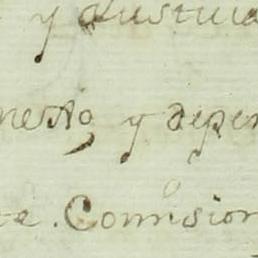 y Justicia
nesto, y depen
te. Comision